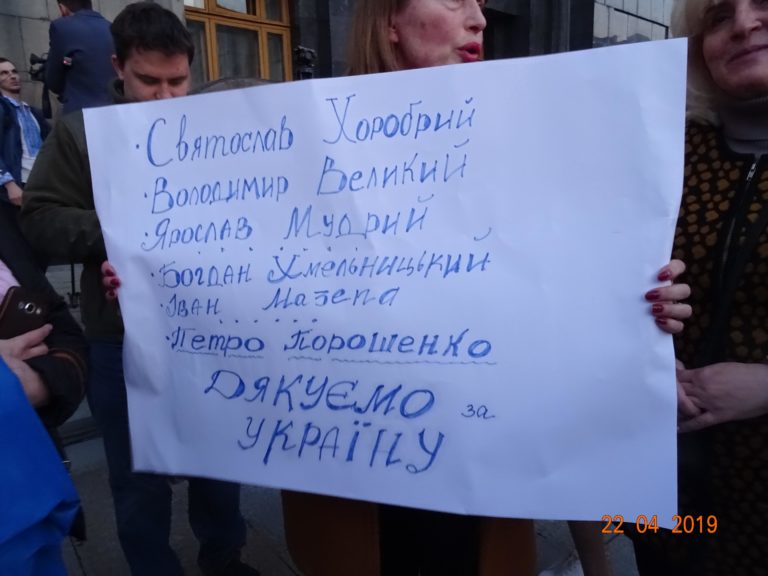 · Святослав Хоробрий
· Володимир Великий
· Ярослав Мудрий
. . . . . . . . . .
· Богдан Хмельницький
· Іван Мазепа
. . . . . .
· Петро Порошенко
Дякуємо за
Україну
22 04 2019